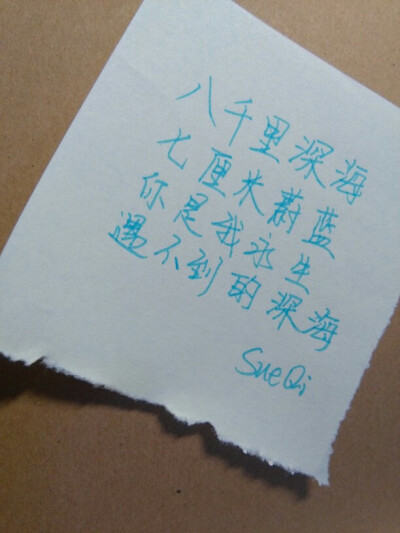 八千里深海
七厘米蔚蓝
你是我永生
遇不到的深海
SueQi